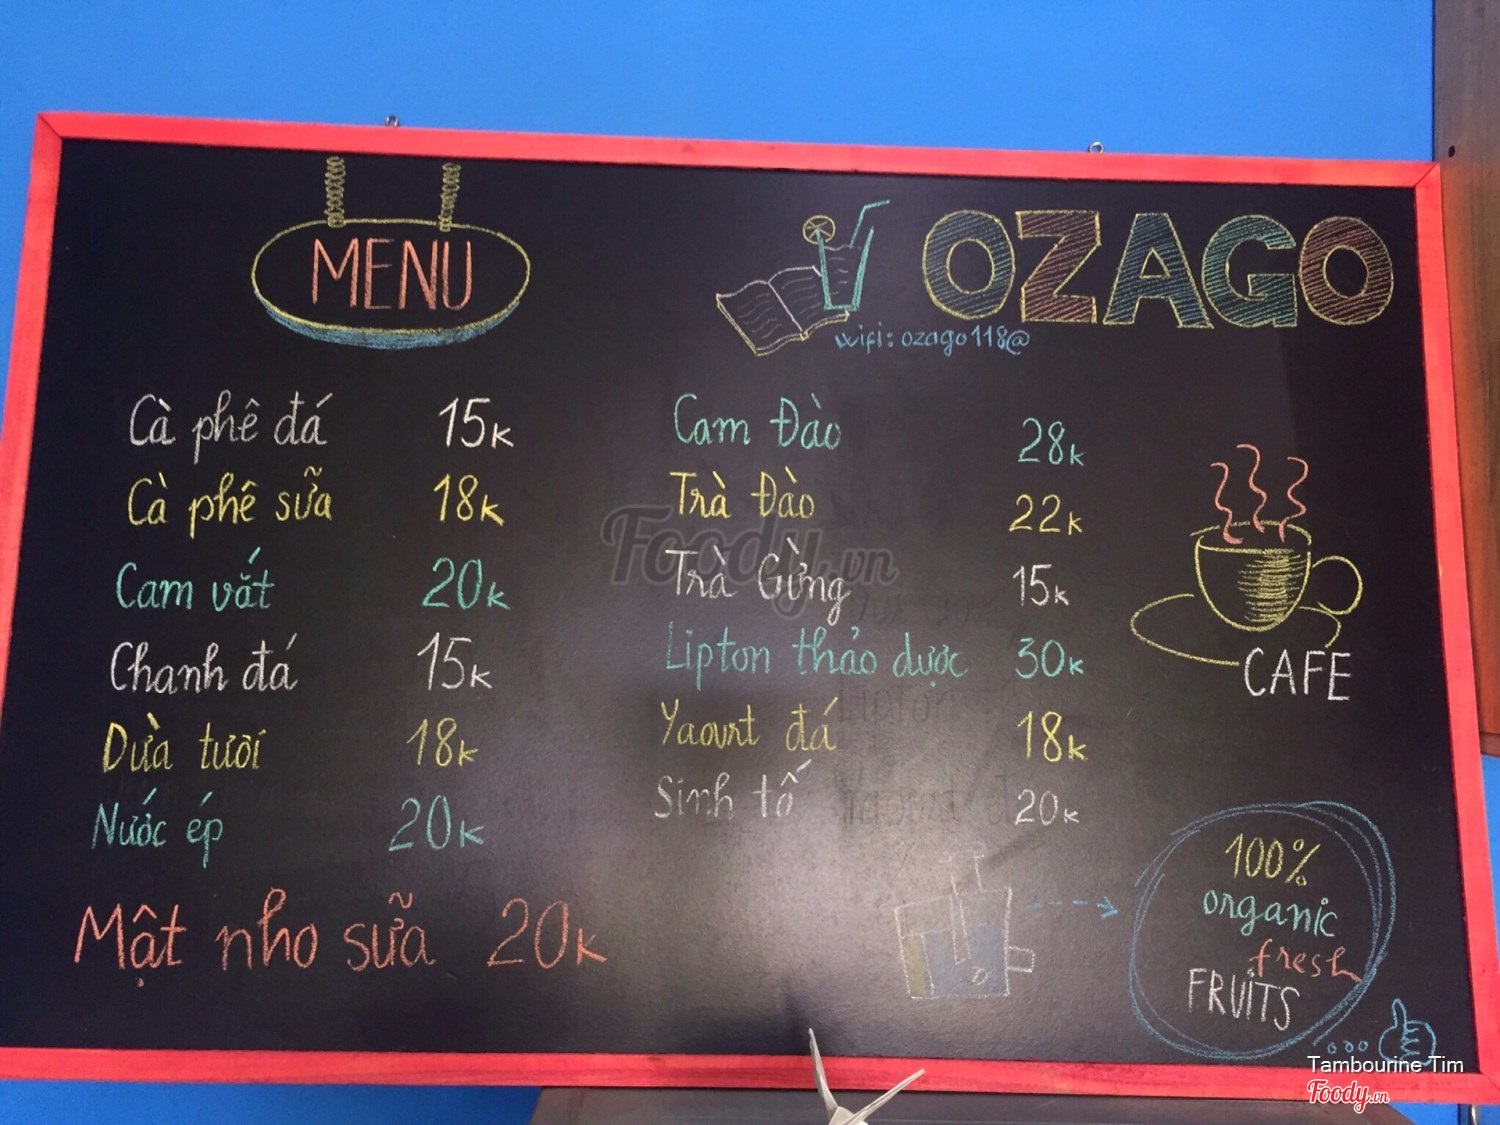 MENU
OZAGO
wifi: ozago118@
Cà phê đá 15k
Cà phê sữa 18k
Cam vắt 20k
Chanh đá 15k
Dừa tươi 18k
Nước ép 20k
Mật nho sữa 20k
Cam Đào 28k
Trà Đào 22k
Trà Gừng 15k
Lipton thảo dược 30k
Yaourt đá 18k
Sinh tố 20k
CAFE
100%
organic
fresh
FRUiTS
Foody.vn
Tambourine Tim
Foody.vn